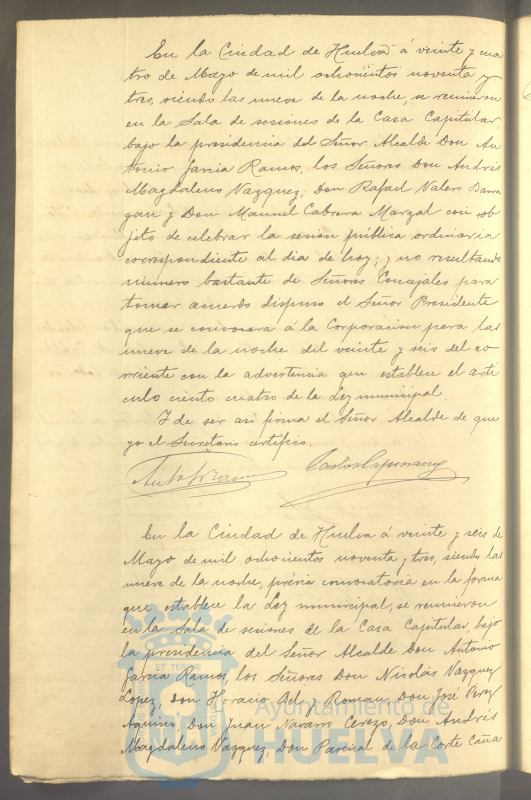 En la Ciudad de Huelva á veinte y cua
tro de Mayo de mil ochocientos noventa y
tres, siendo las nueve de la noche, se reunieron
en la Sala de sesiones de la Casa Capitular
bajo la presidencia del Señor Alcalde Don An
tonio Garcia Ramos, los Señores Don Andrés
Magdaleno Vazquez, Don Rafael Valero Barra
gan y Don Manuel Cabrera Marzal con ob
jeto de celebrar la sesion pública ordinaria
correspondiente al dia de hoy; y no resultando
número bastante de Señores Concejales para
tomar acuerdo dispuso el Señor Presidente
que se convocara á la Corporacion para las
nueve de la noche del veinte y seis del co
rriente con la advertencia que establece el artí
culo ciento cuatro de la Ley municipal.
Y de ser asi firma el Señor Alcalde de que
yo el Secretario certifico.
En la Ciudad de Huelva á veinte y seis de
Mayo de mil ochocientos noventa y tres, siendo las
nueve de la noche, prévia convocatoria en la forma
que establece la Ley municipal, se reunieron
en la Sala de sesiones de la Casa Capitular, bajo
la presidencia del Señor Alcalde Don Antonio
Garcia Ramos, los Señores Don Nicolás Vazquez
Lopez, Don Horacio Bel y Roman, Don José Perez
Aquino, Don Juan Navarro Cerezo, Don Andrés
Magdaleno Vazquez, Don Pascual de la Corte Caña
ET TERRAE
Ayuntamiento de
HUELVA